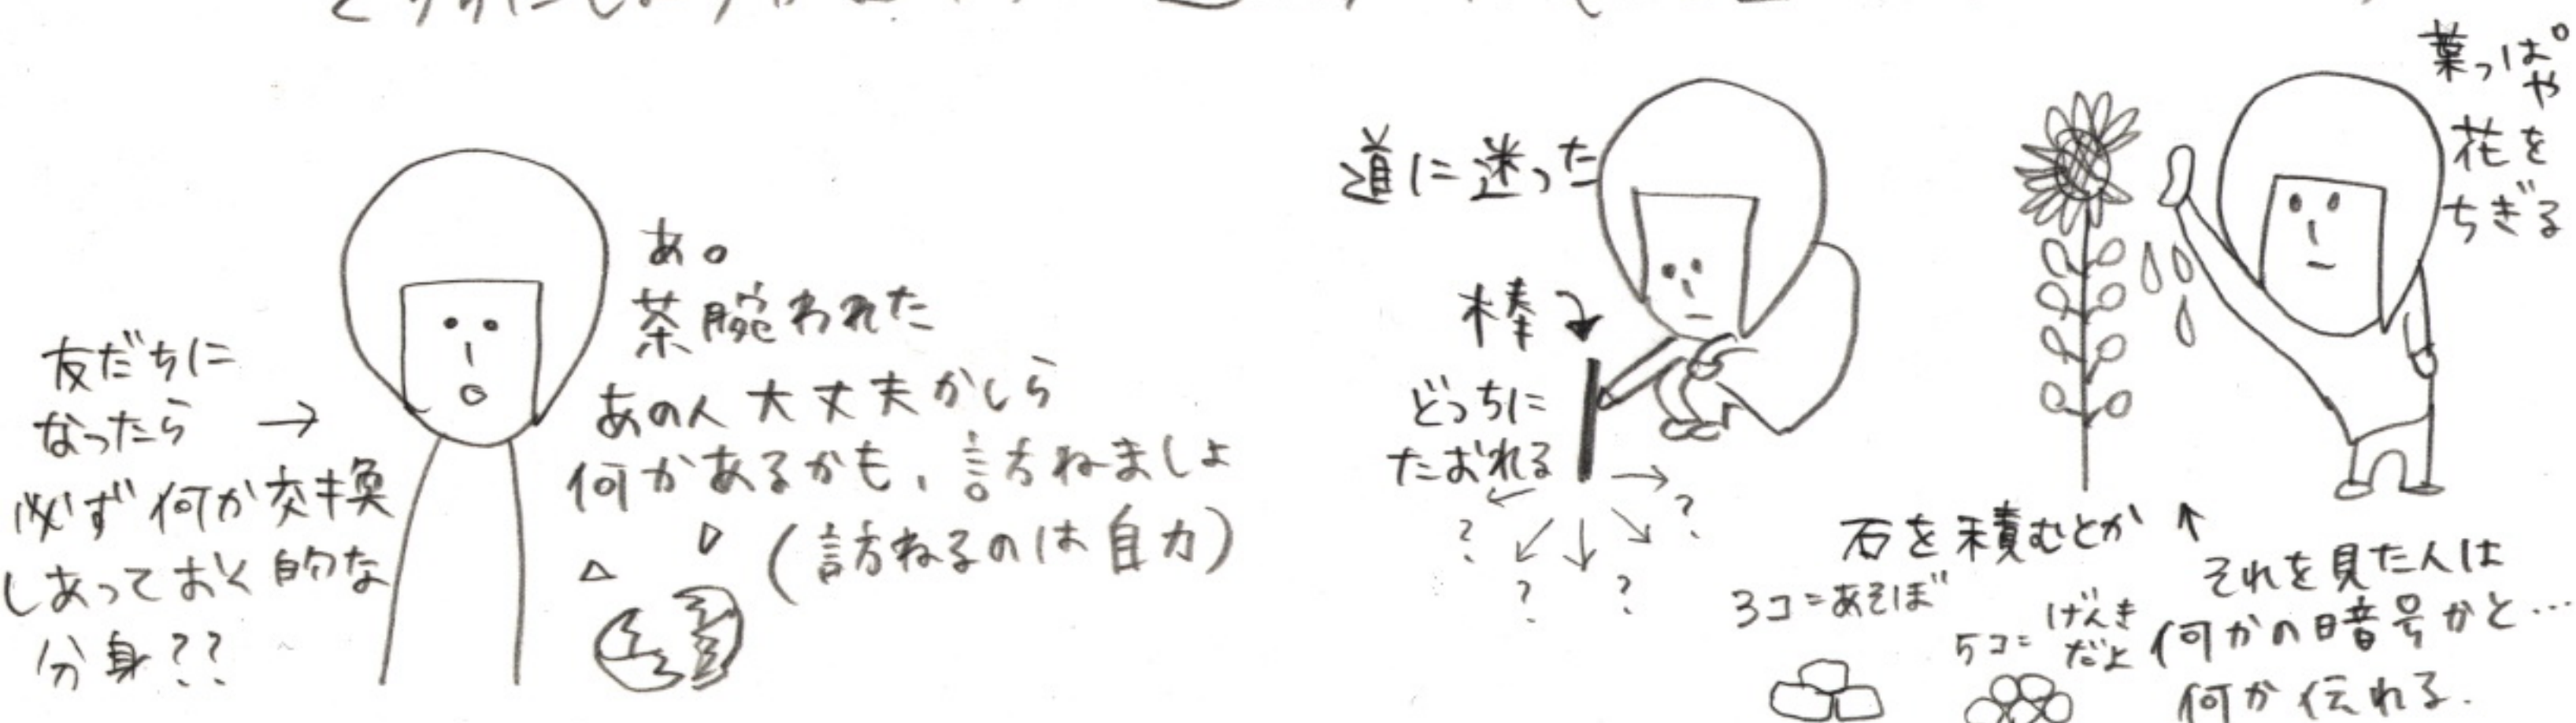 友だちに
なったら →
必ず何か交換
しあっておく的な
分身??
あ。
茶腕われた
あの人大丈夫かしら
何かあるかも、訪ねましょ
(訪ねるのは自力)
道に迷った
棒
どっちに
たおれる
?
?
?
?
葉っぱや
花を
ちぎる
石を積むとか
3コ=あそぼ
5コ=げんき
だよ
それを見た人は
何かの暗号かと…
何か伝れる.